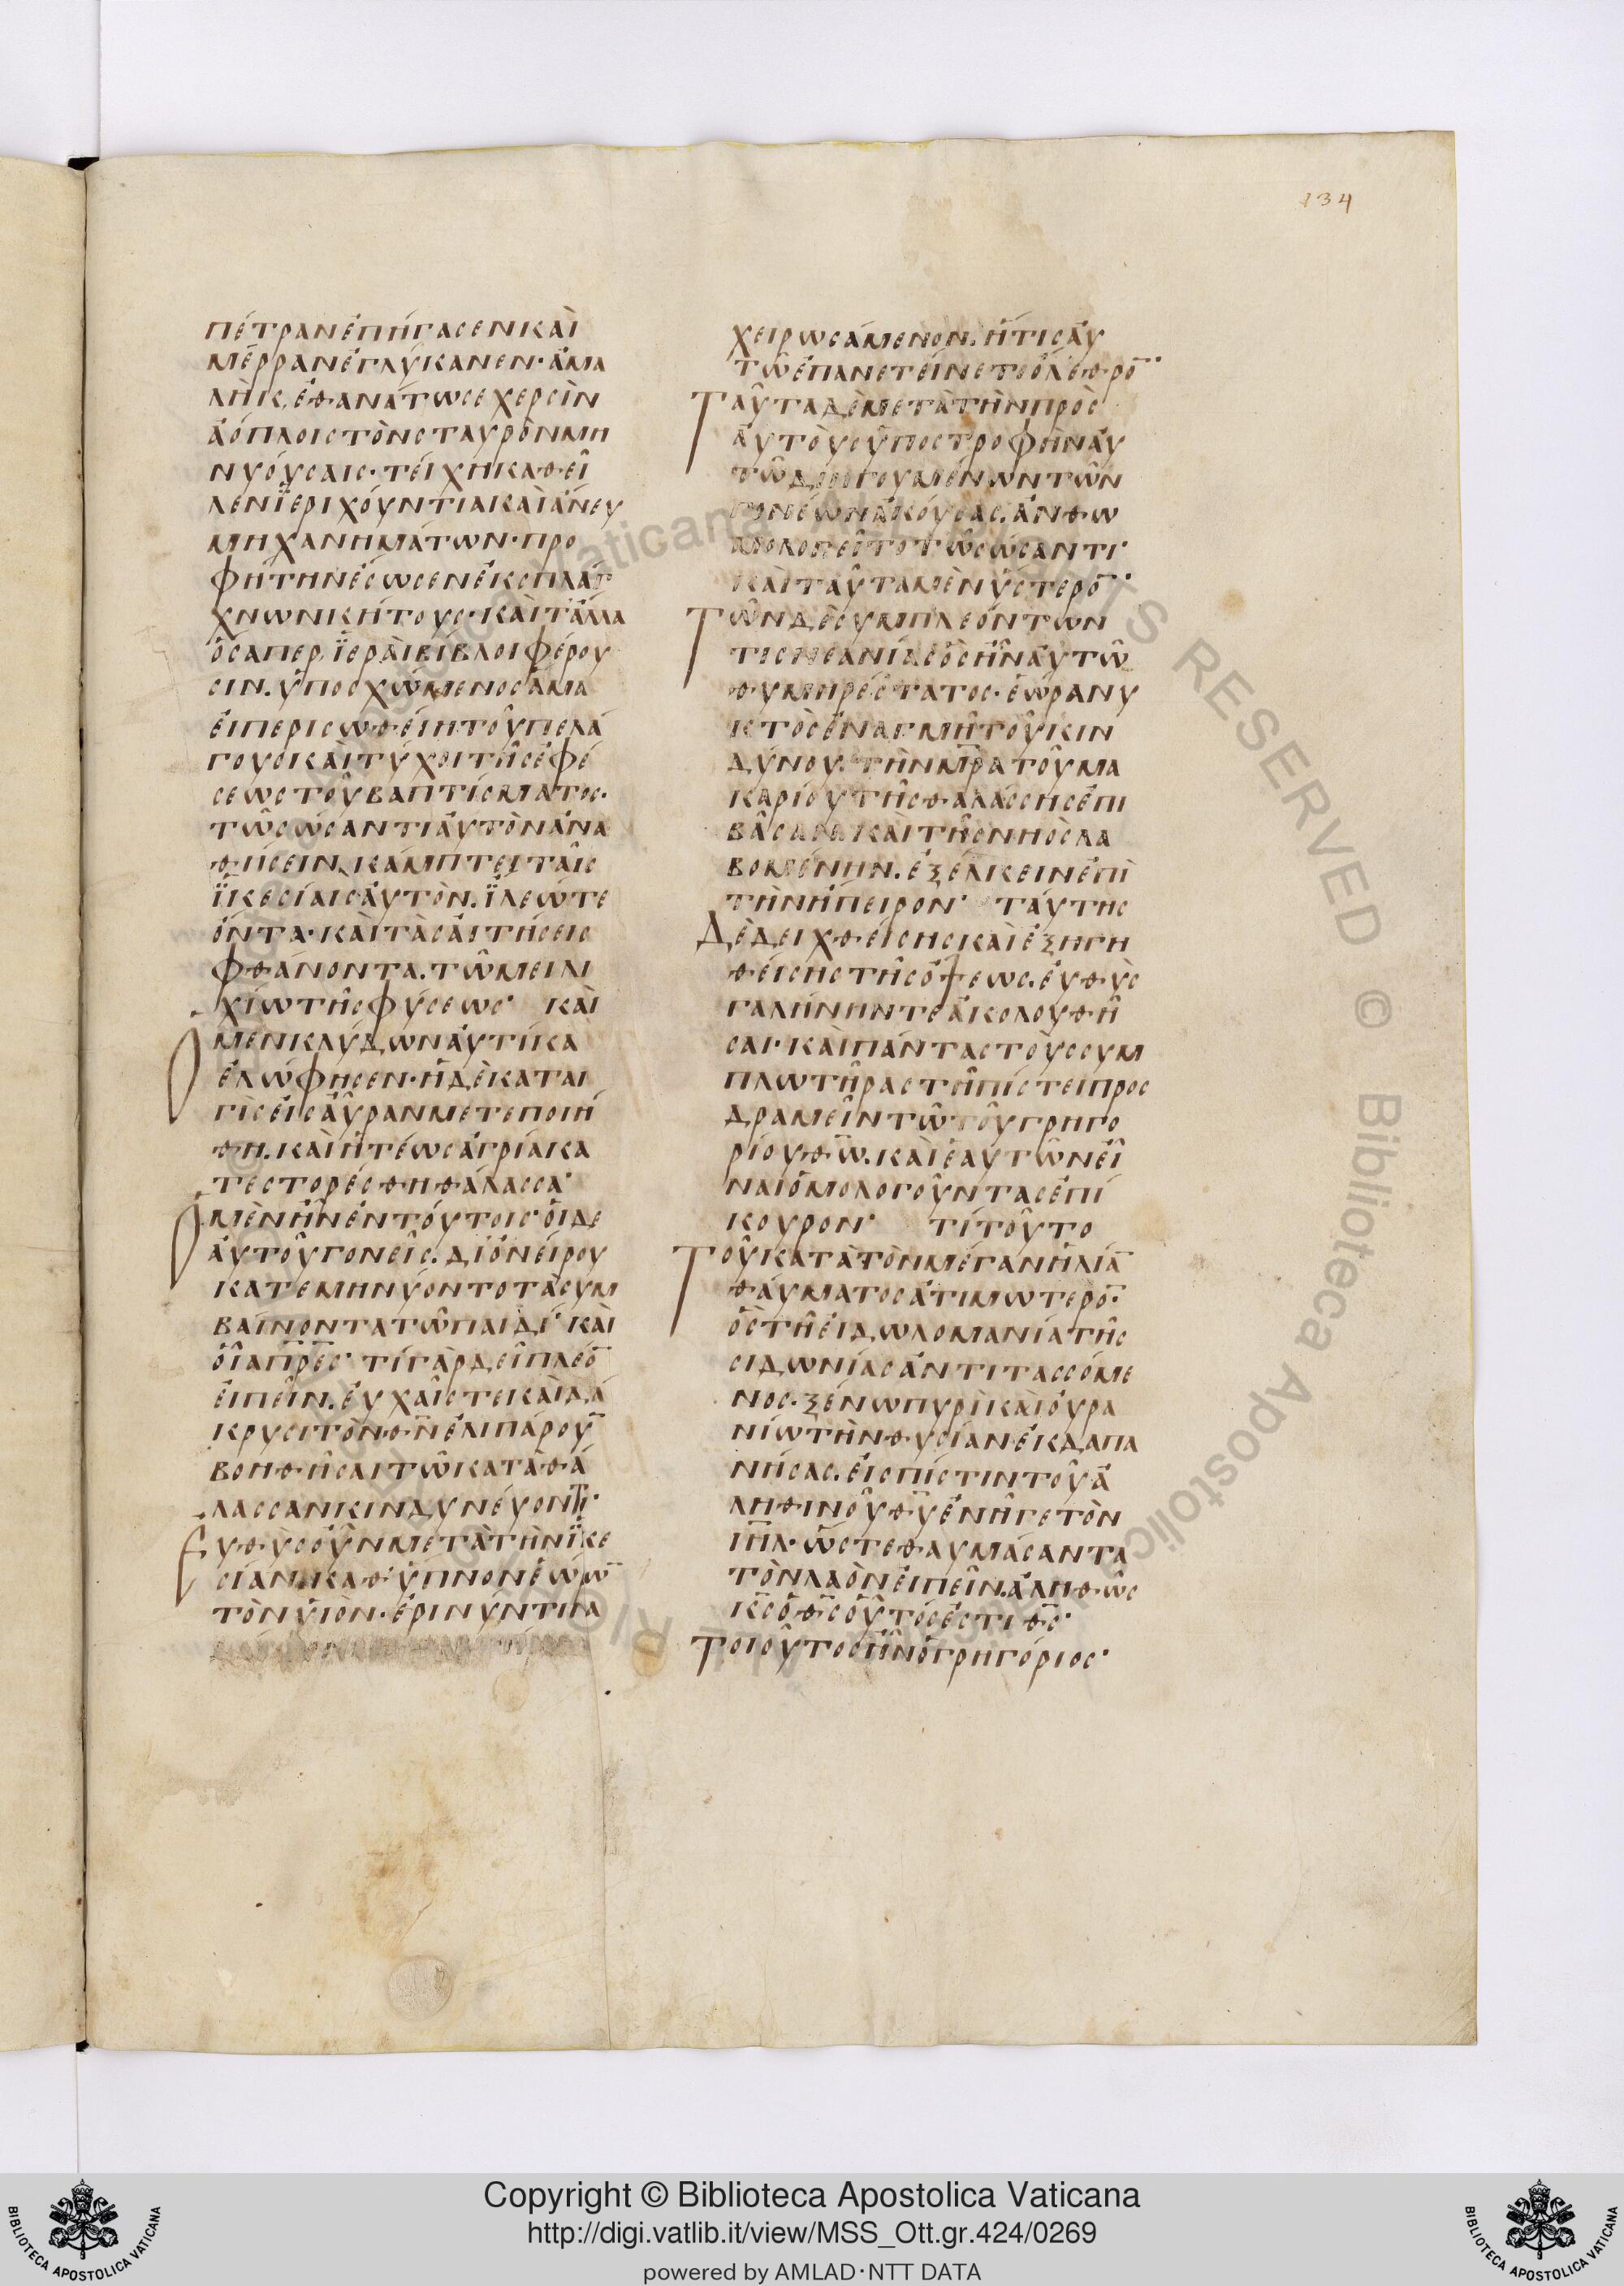 134
πέτραν ἐπήγασεν καὶ
μέρραν ἐγλύκανεν· ἀμα
λὴκ, ἐθανάτωσε χερσὶν
ἀόπλοις τὸν σταυρὸν μη
νυούσαις· τείχη καθεῖ
λεν ϊεριχούντια καὶ ἄνευ
μηχανημάτων· προ
φήτην ἔσωσεν ἐκ σπλάγ
χνων κήτους· καὶ τἄλλα
ὅσαπερ, ϊεραὶ βίβλοι φέρου
σιν. ὑποσχώμενος ἅμα
εἰ περισωθείη τοῦ πελά
γους καὶ τύχοι τῆς ἐφέ
σεως τοῦ βαπτίσματος·
τῶ σώσαντι ἀυτὸν ἀνα
θήσειν, κάμπτει ταῖς
ϊκεσίαις ἀυτὸν. ϊλεώτε
ὄντα· καὶ τὰς ἀιτήσεις
φθάνοντα. τῶ μειλι
χίω τῆς φύσεως· καὶ
Ὁ μεν κλύδων ἀυτίκα
ἐλώφησεν· ἡ δὲ καται
γὶς εἰς ἀύραν μετεποιή
θη. καὶ ἡ τέως ἀγρία κα
τεστορέσθη θάλασσα·
Ὁ μὲν ἦν ἐν τούτοις· ὁι δε
ἀυτοῦ γονεῖς. δι ὀνείρου
κατεμηνύοντο τὰ συμ
βαίνοντα τῶ παιδί· καὶ
ὁῖα π̅ρ̅ε̅ς· τί γὰρ δεῖ πλεο̅
εἰπεῖν. ἐυχαῖς τε καὶ δά
κρυσι τὸν θ̅ν̅ ἐλιπάρου̅
βοηθῆσαι τῶ κατὰ θά
λασσαν κινδυνέυοντι·
Ευθὺς οὖν μετὰ τὴν ϊκε
σίαν, καθ' ὕπνον ἑώρω̅
τὸν ὑιὸν· ἐρινύν τινα
χειρωσάμενον. ἥτις ἀυ
τῶ ἐπανετείνετο ὄλεθρο̅·
Ταῦτα δὲ μετὰ τὴν πρὸς
ἀυτὸυς ὑποστροφὴν ἀυ
τῶ διηγουμένων τῶν
γονέων ἀκούσας. ἀνθω
μολογεῖτο τῶ σώσαντι·
καὶ ταῦτα μὲν ὕστερο̅·
Τῶν δὲ συμπλεόντων
τις νεανίας ὃς ἦν ἀυτῶ
θυμηρέστατος. ἑώρα νυ
κτὸς ἐν ἀκμῆ τοῦ κιν
δύνου. τὴν μ̅ρ̅α τοῦ μα
καρίου τῆς θαλάσσης ἐπι
βᾶσαν καὶ τῆς νηὸς λα
βομένην. ἐξέλκειν ἐπὶ
τὴν ἤπειρον· ταύτης
Δὲ δειχθείσης καὶ ἐξηγη
θείσης τῆς ὄψεως. ἐυθὺς
γαλήνην τε ἀκολουθῆ
σαι· καὶ πάντας τοὺς συμ
πλωτῆρας τῆ πίστει προς
δραμεῖν τῶ τοῦ γρηγο
ρίου θ̅ω̅. καὶ ἑαυτῶν εἶ
ναι ὁμολογοῦντας ἐπί
κουρον· τί τοῦτο
Τοῦ κατὰ τὸν μέγαν ἠλία̅
θάυματος ἀτιμωτερο̅·
ὃς τῆ ἐιδωλομανία τῆς
σιδωνίας ἀντιτασσόμε
νος· ξένω πυρὶ καὶ ὀυρα
νίω τὴν θυσίαν ἐκδαπα
νήσας. εἰς πίστιν τοῦ ἀ
ληθινοῦ θ̅υ̅ ἐνῆγε τὸν
ι̅η̅λ̅· ὥστε θαυμάσαντα
τὸν λαὸν ἐιπεῖν. ἀληθῶς
κ̅ς̅ ὁ θ̅ς̅ οὗτός ἐστι θ̅ς̅·
Τοιοῦτος ἦν ὁ γρηγόριος·
Copyright © Biblioteca Apostolica Vaticana
http://digi.vatlib.it/view/MSS_Ott.gr.424/0269
powered by AMLAD·NTT DATA
BIBLIOTECA APOSTOLICA VATICANA
BIBLIOTECA APOSTOLICA VATICANA